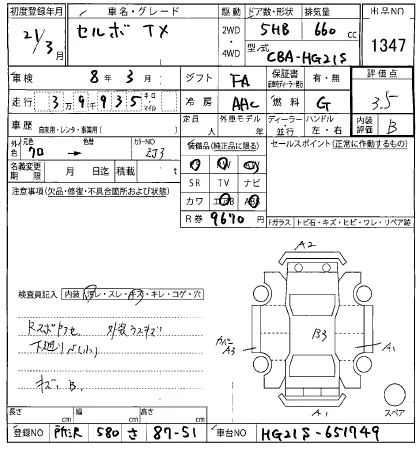 初度登録年月 車名・グレード 駆動 ドア数・形状 排気量 出品NO
21/3月 セルボ TX 2WD・4WD 5HB 660cc 1347
型式 CBA-HG21S
車検 8年3月 シフト FA 保証書 有・無 評価点
走行 39935 キロ・マイル 冷房 AAC 燃料 G 3.5
車歴 自家用・レンタ・事業用( ) 定員 人 外車モデル 年 ディーラー・並行 ハンドル 左・右 内装評価 B
外色 元色 クロ → 色替 カラーNO ZJ3 装備品(純正品に限る) セールスポイント(正常に作動するもの)
名義変更期限 月 日迄 積載 t
SR TV ナビ
注意事項(欠品・修復・不具合箇所および状態)
カワ エアB ABS
R券 9670円
Fガラス トビ石・キズ・ヒビ・ワレ・リペア跡
A2
検査員記入 内装 汚レ・スレ・キズ・キレ・コゲ・穴
外装うすキズ
下廻り
キズ B
B3
カバー A3
A1
A1
スペア
長さ cm 幅 cm 高さ cm
登録NO 所沢 580 さ 87-51 車台NO HG21S-651749